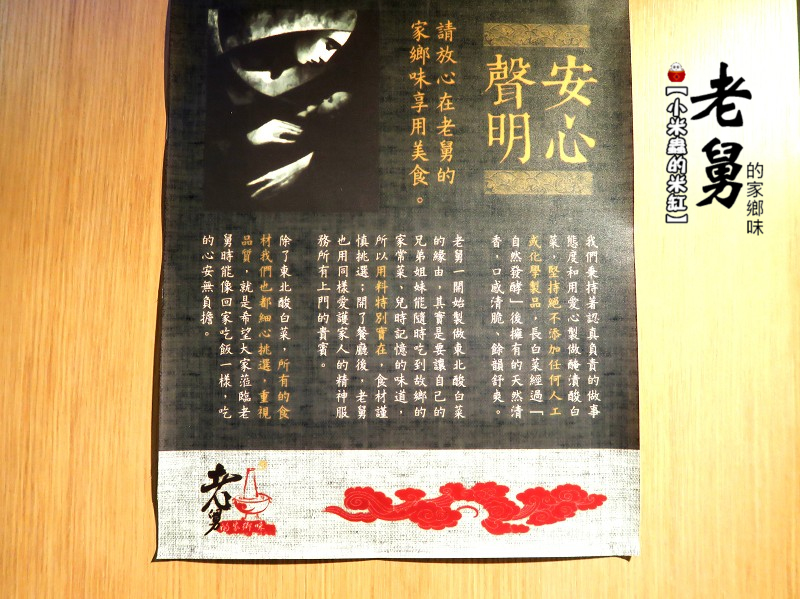 安心
聲明
請放心在老舅的
家鄉味享用美食。
我們秉持著認真負責的做事
態度和用愛心製做醃漬酸白
菜，堅持絕不添加任何人工
或化學製品，長白菜經過「
自然發酵」後擁有的天然清
香，口感清脆、餘韻舒爽。
老舅一開始製做東北酸白菜
的緣由，其實是要讓自己的
兄弟姐妹能隨時吃到故鄉的
家常菜、兒時記憶的味道，
所以用料特別實在，食材謹
慎挑選；開了餐廳後，老舅
也用同樣愛護家人的精神服
務所有上門的貴賓。
除了東北酸白菜，所有的食
材我們也都細心挑選，重視
品質，就是希望大家蒞臨老
舅時能像回家吃飯一樣，吃
的心安無負擔。
老舅
的家鄉味
老舅
的家鄉味
【小米蟲的米缸】